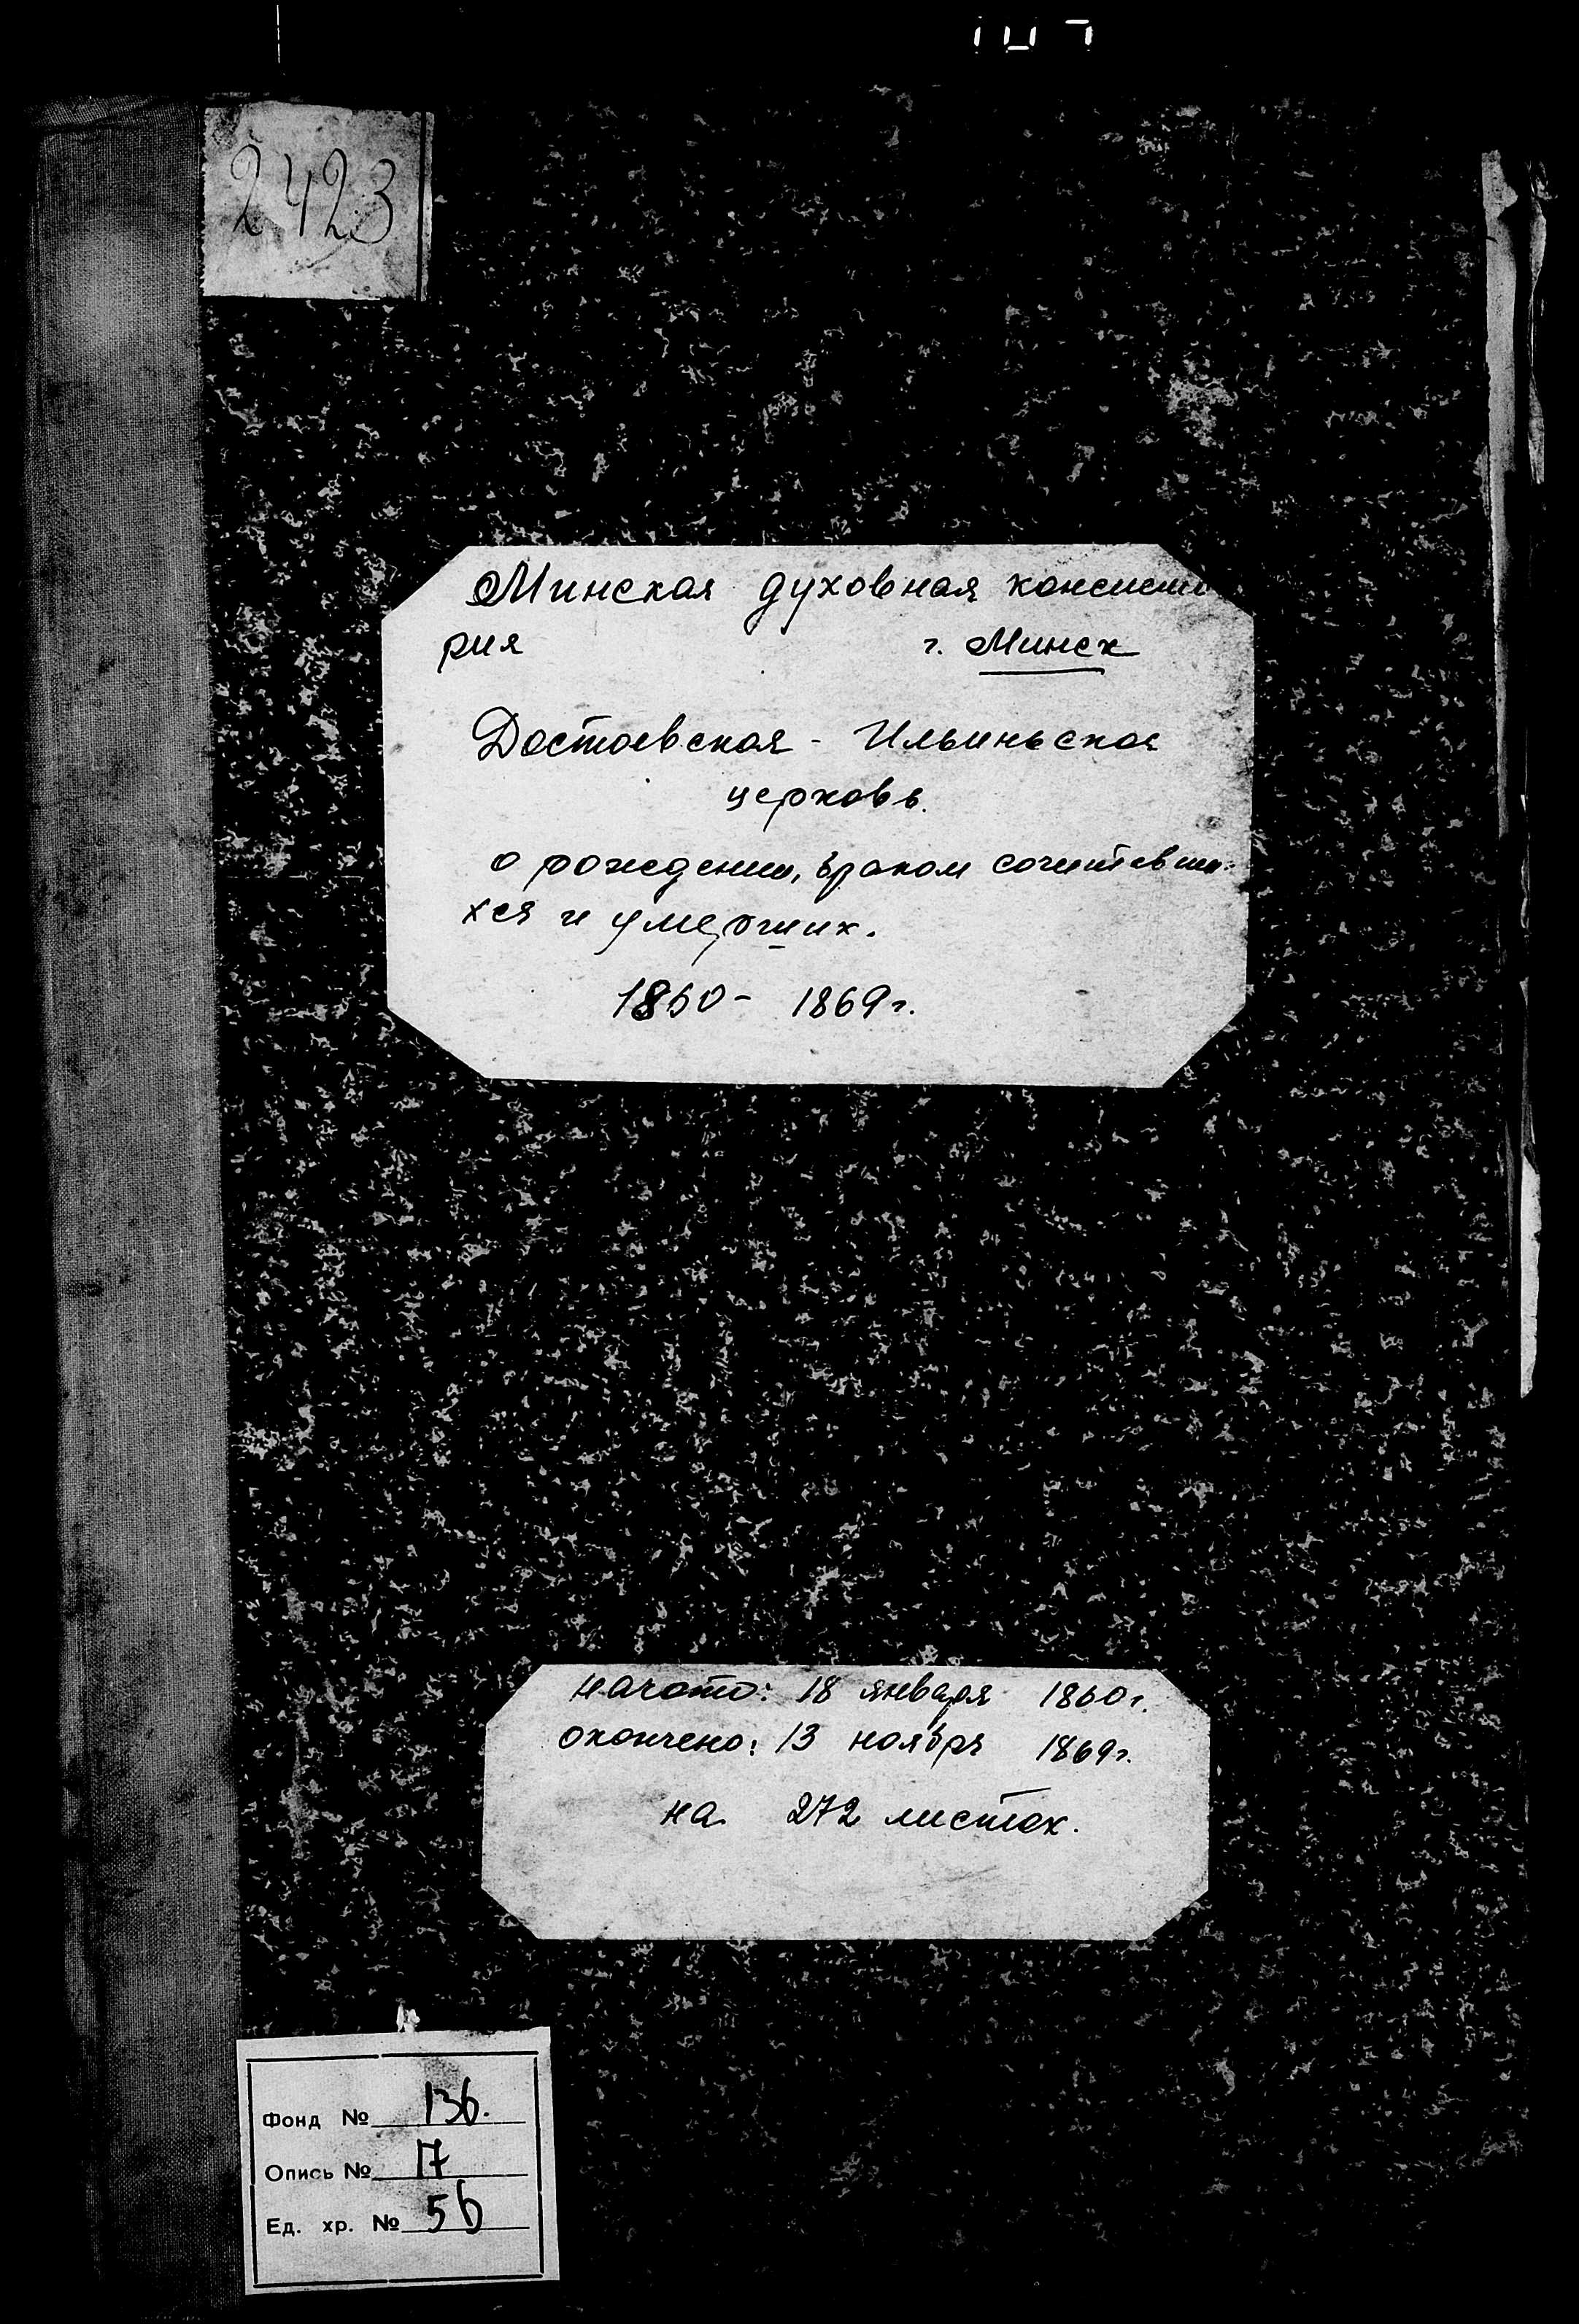 2423
Минская духовная консисто
рия г. Минск
Достоевская - Ильинская
церковь.
о рождении, браком сочетавши-
хся и умерших.
1860- 1869г.
начато: 18 января 1860г.
окончено: 13 ноября 1869г.
на 272 листах.
Фонд № 136.
Опись № 17
Ед. хр. № 56